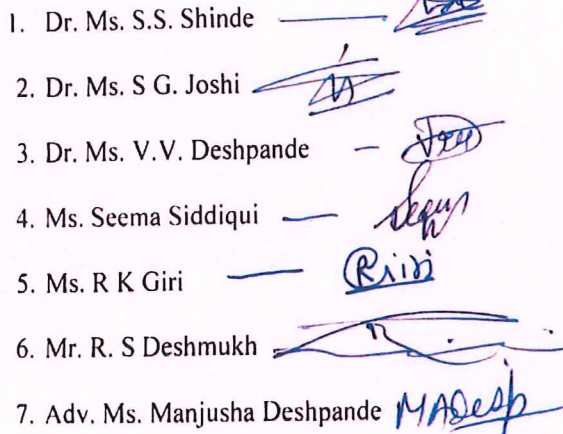 1. Dr. Ms. S.S. Shinde
2. Dr. Ms. S G. Joshi
3. Dr. Ms. V.V. Deshpande
4. Ms. Seema Siddiqui
5. Ms. R K Giri
6. Mr. R. S Deshmukh
7. Adv. Ms. Manjusha Deshpande